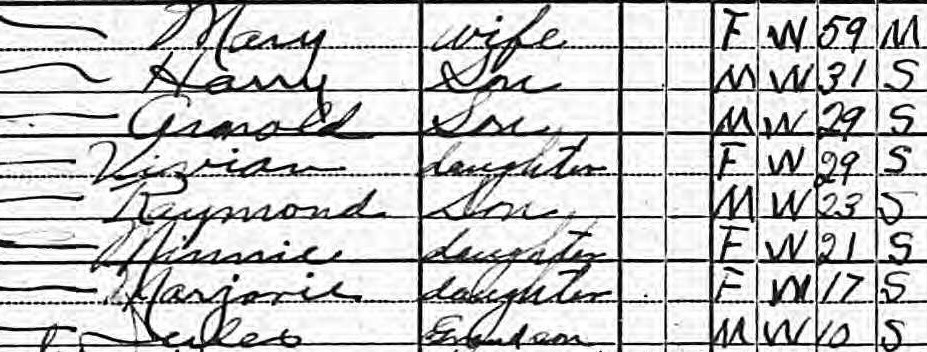 Mary wife F W 59 M
Harry Son M W 31 S
Arnold Son M W 29 S
Vivian daughter F W 29 S
Raymond Son M W 23 S
Minnie daughter F W 21 S
Marjorie daughter F W 17 S
Grandson M W 10 S